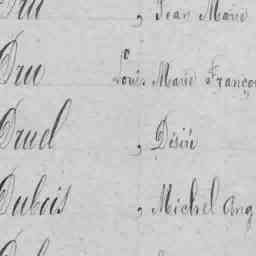 Dru , Jean Marie
Dru Louis Marie Franço
Druel , Désiré
Dubois , Michel Ang